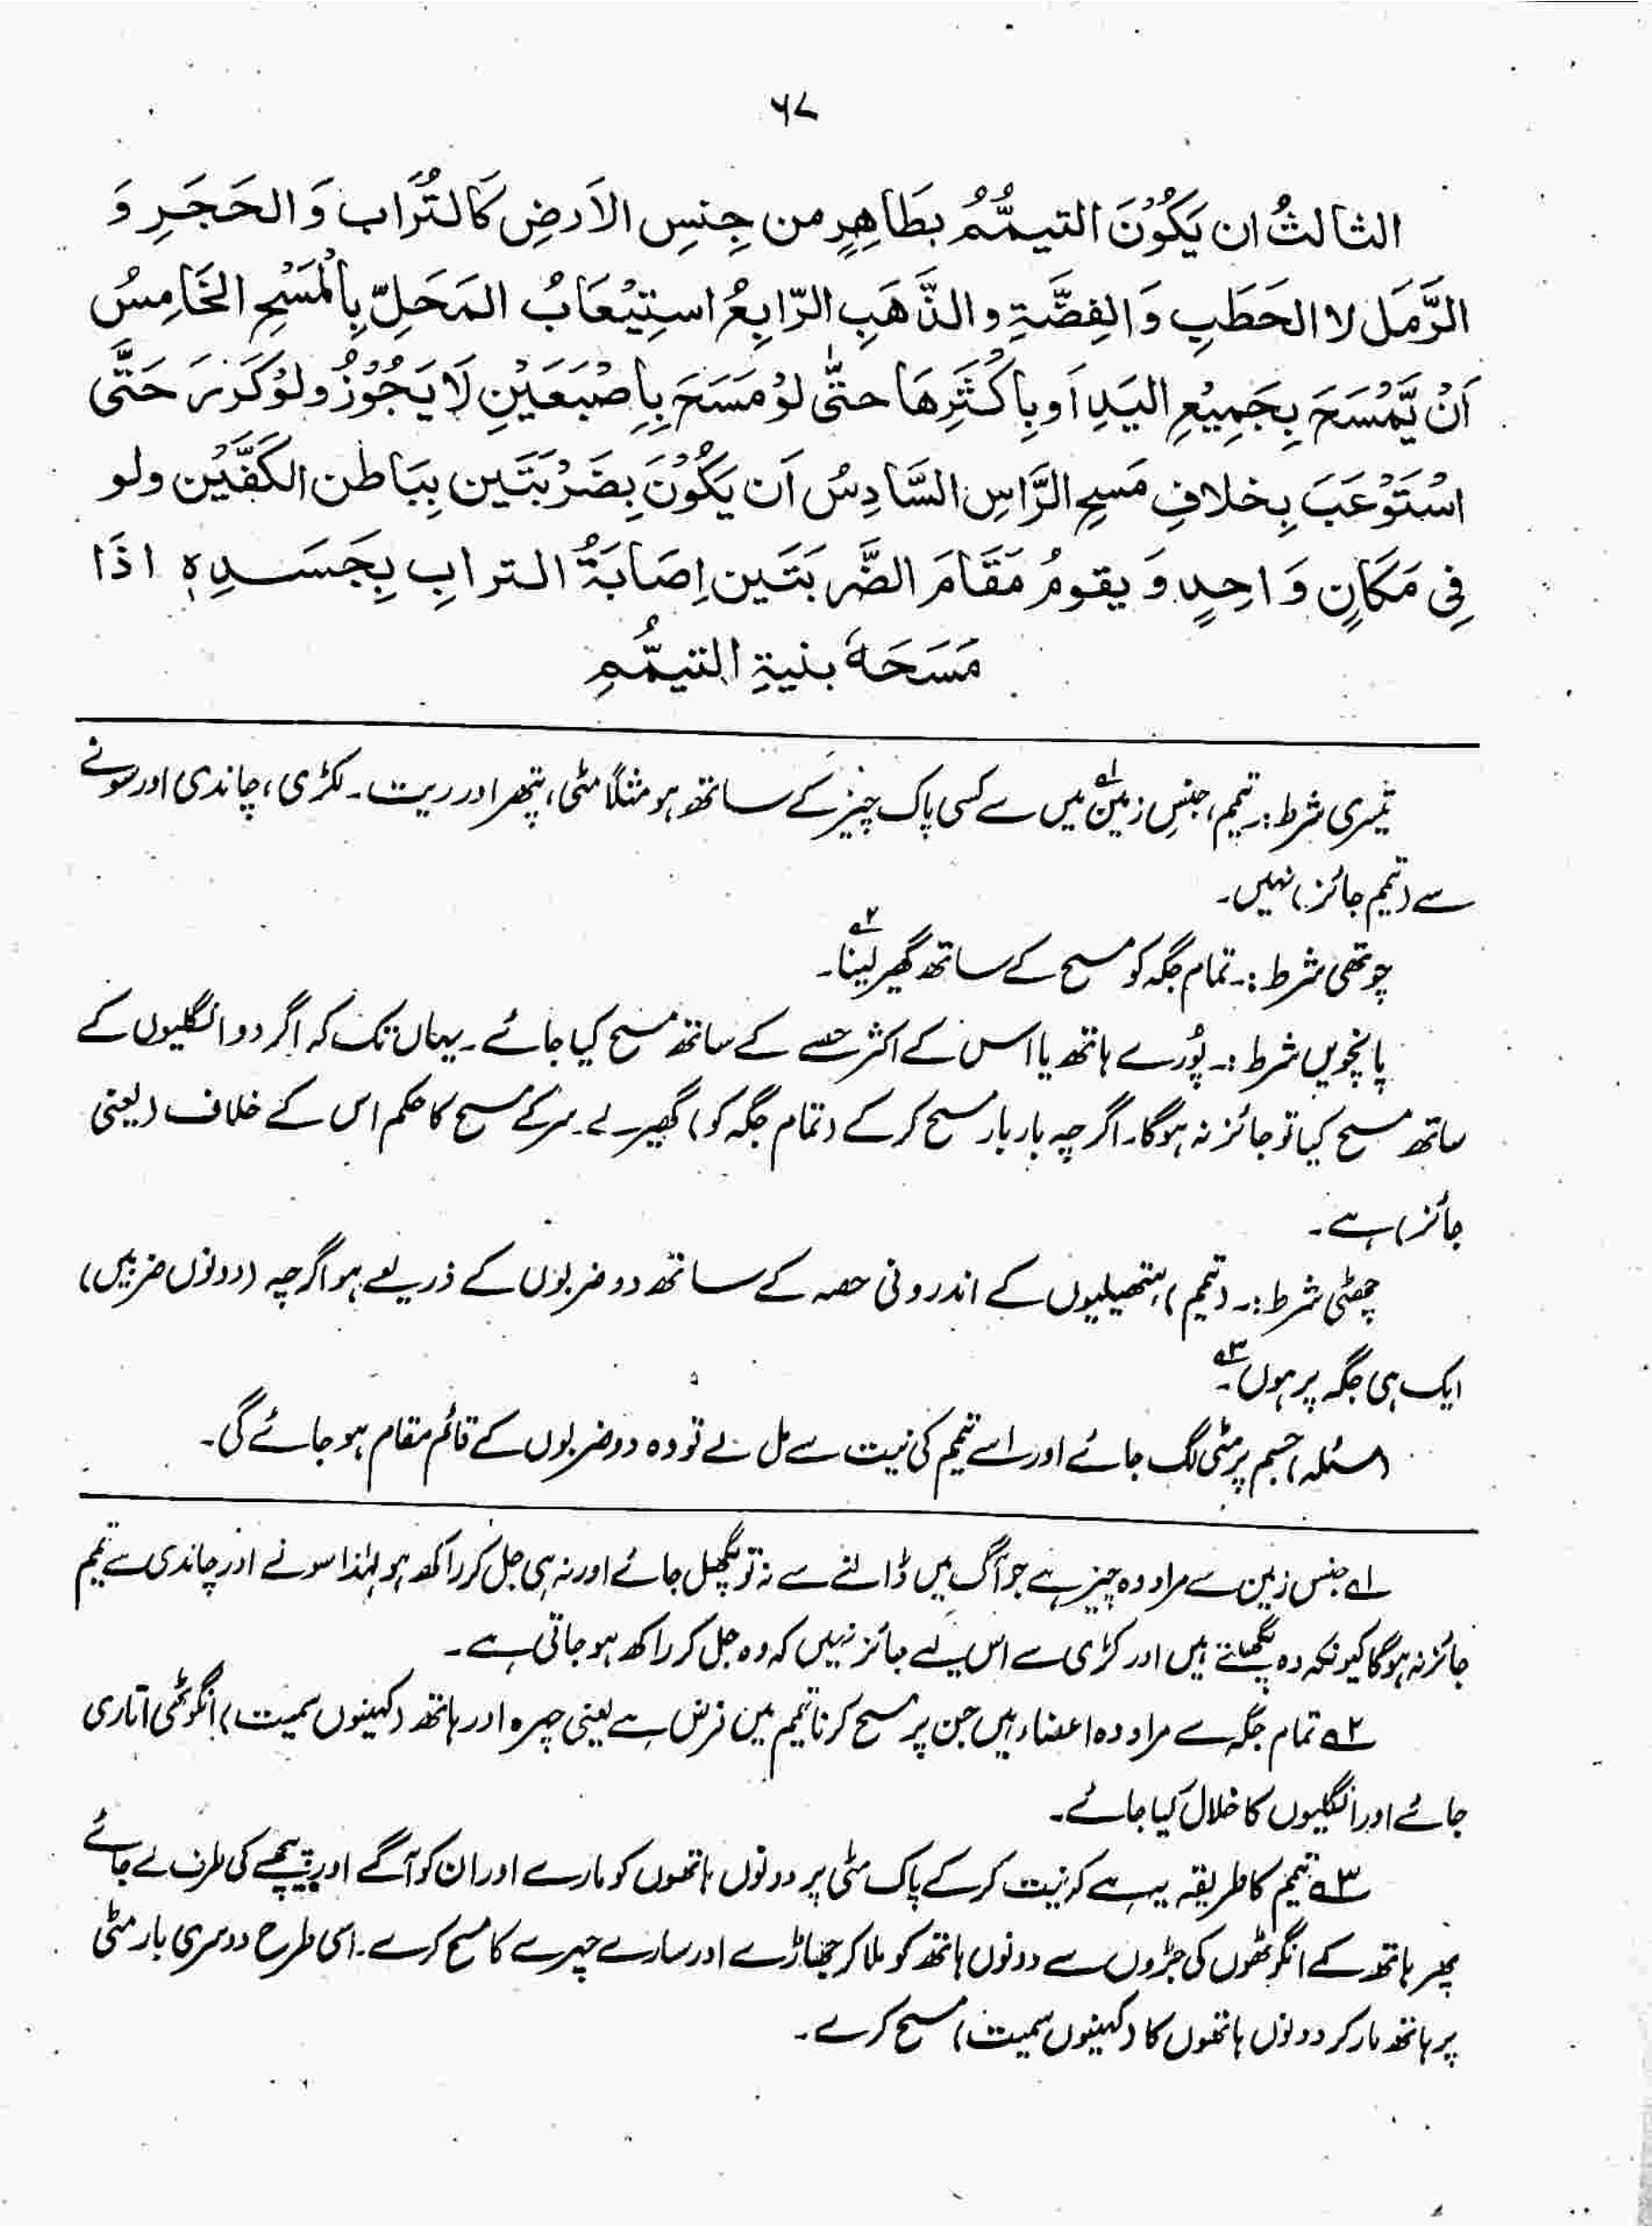 ٦٧
الثالثُ ان يَكُوْنَ التيمُّمُ بطَاهِرٍ من جِنسِ الاَرضِ كَالتُّرَاب وَالحَجَرِ وَ
الرَّمَل لا الحَطَبِ وَالفِضَّۃِ والذَّهَبِ الرّابِعُ استِيْعَابُ المَحَلِّ بِالْمَسْحِ الخَامِسُ
اَنْ يَّمْسَحَ بِجَمِيْعِ اليَدِ اَو بِاَكْثَرِهَا حتّٰى لوْ مَسَحَ بِاِصْبَعَيْنِ لَا يَجُوْزُ ولوْ كَرَّرَ حَتَّى
اسْتَوْعَبَ بِخلافِ مَسحِ الرَّاسِ السَّادِسُ اَن يَكُوْنَ بِضَرْبَتَين بِبَاطن الكَفَّيْن ولو
فِى مَكَانٍ وَاحِدٍ وَ يقومُ مَقَامَ الضَّربَتَين اِصَابَۃُ الترابِ بِجَسَدِہٖ اذَا
مَسَحَهٗ بنيۃِ التيمُّمِ
تیسری شرط :۔ تیمم، جنسِ زمین۱؎ میں سے کسی پاک چیز کے ساتھ ہو مثلاً مٹی، پتھر اور ریت۔ لکڑی، چاندی اور سونے
سے (تیمم جائز) نہیں۔
چوتھی شرط :۔ تمام جگہ کو مسح کے ساتھ گھیر لینا۲؎۔
پانچویں شرط :۔ پُورے ہاتھ یا اس کے اکثر حصے کے ساتھ مسح کیا جائے۔ یہاں تک کہ اگر دو انگلیوں کے
ساتھ مسح کیا تو جائز نہ ہوگا۔ اگرچہ بار بار مسح کر کے (تمام جگہ کو) گھیر لے۔ سر کے مسح کا حکم اس کے خلاف (یعنی
جائز) ہے۔
چھٹی شرط :۔ (تیمم) ہتھیلیوں کے اندرونی حصہ کے ساتھ دو ضربوں کے ذریعے ہو اگرچہ (دونوں ضربیں)
ایک ہی جگہ پر ہوں۳؎۔
(مسئلہ) جسم پر مٹی لگ جائے اور اسے تیمم کی نیت سے مل لے تو وہ دو ضربوں کے قائم مقام ہو جائے گی۔
۱؎ جنس زمین سے مراد وہ چیز ہے جو آگ میں ڈالنے سے نہ تو پگھل جائے اور نہ ہی جل کر راکھ ہو لہٰذا سونے اور چاندی سے تیمم
جائز نہ ہوگا کیونکہ وہ پگھلتے ہیں اور لکڑی سے اس لیے جائز نہیں کہ وہ جل کر راکھ ہو جاتی ہے۔
۲؎ تمام جگہ سے مراد وہ اعضاء ہیں جن پر مسح کرنا تیمم میں فرض ہے یعنی چہرہ اور ہاتھ (کہنیوں سمیت) انگوٹھی اتاری
جائے اور انگلیوں کا خلال کیا جائے۔
۳؎ تیمم کا طریقہ یہ ہے کہ نیت کر کے پاک مٹی پر دونوں ہاتھوں کو مارے اور ان کو آگے اور پیچھے کی طرف لے جائے
پھر ہاتھ کے انگوٹھوں کی جڑوں سے دونوں ہاتھ کو ملا کر جھاڑے اور سارے چہرے کا مسح کرے۔ اسی طرح دوسری بار مٹی
پر ہاتھ مار کر دونوں ہاتھوں کا (کہنیوں سمیت) مسح کرے۔